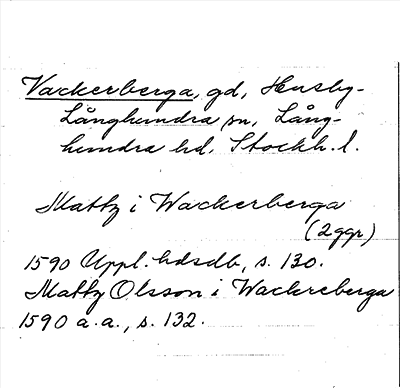 Vackerberga, gd, Husby-
Långhundra sn, Lång-
hundra hd. Stockh. l.
Mattz i Wackerberga
(2 ggr)
1590 Uppl. hdsdb, s. 130.
Mattz Olsson i Wackreberga
1590 a.a., s. 132.